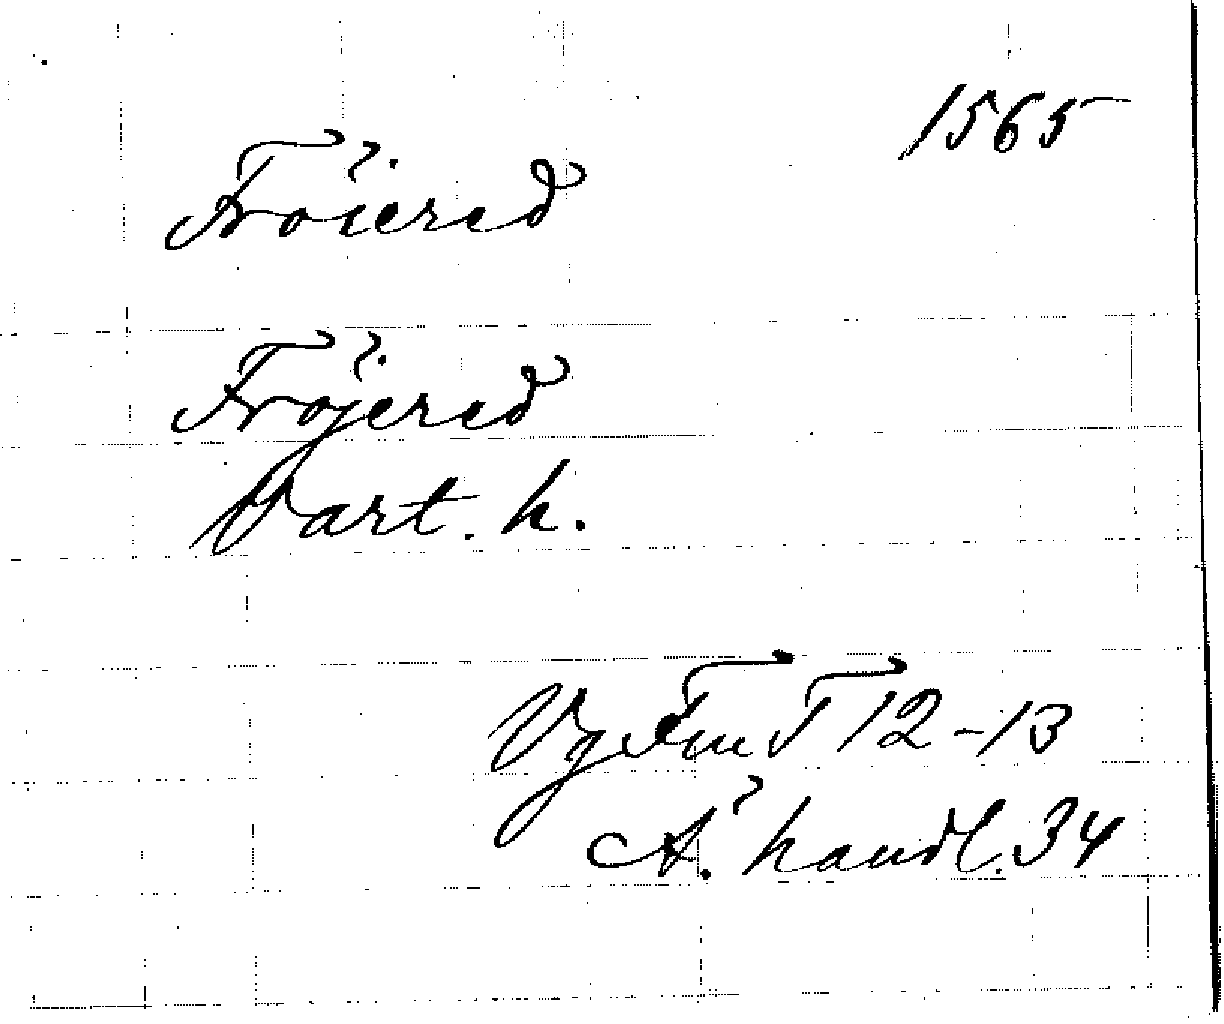 1565
Fröiered
Fröjered
Vart. h.
Vg Fm T 12-13
Ä. handl. 34